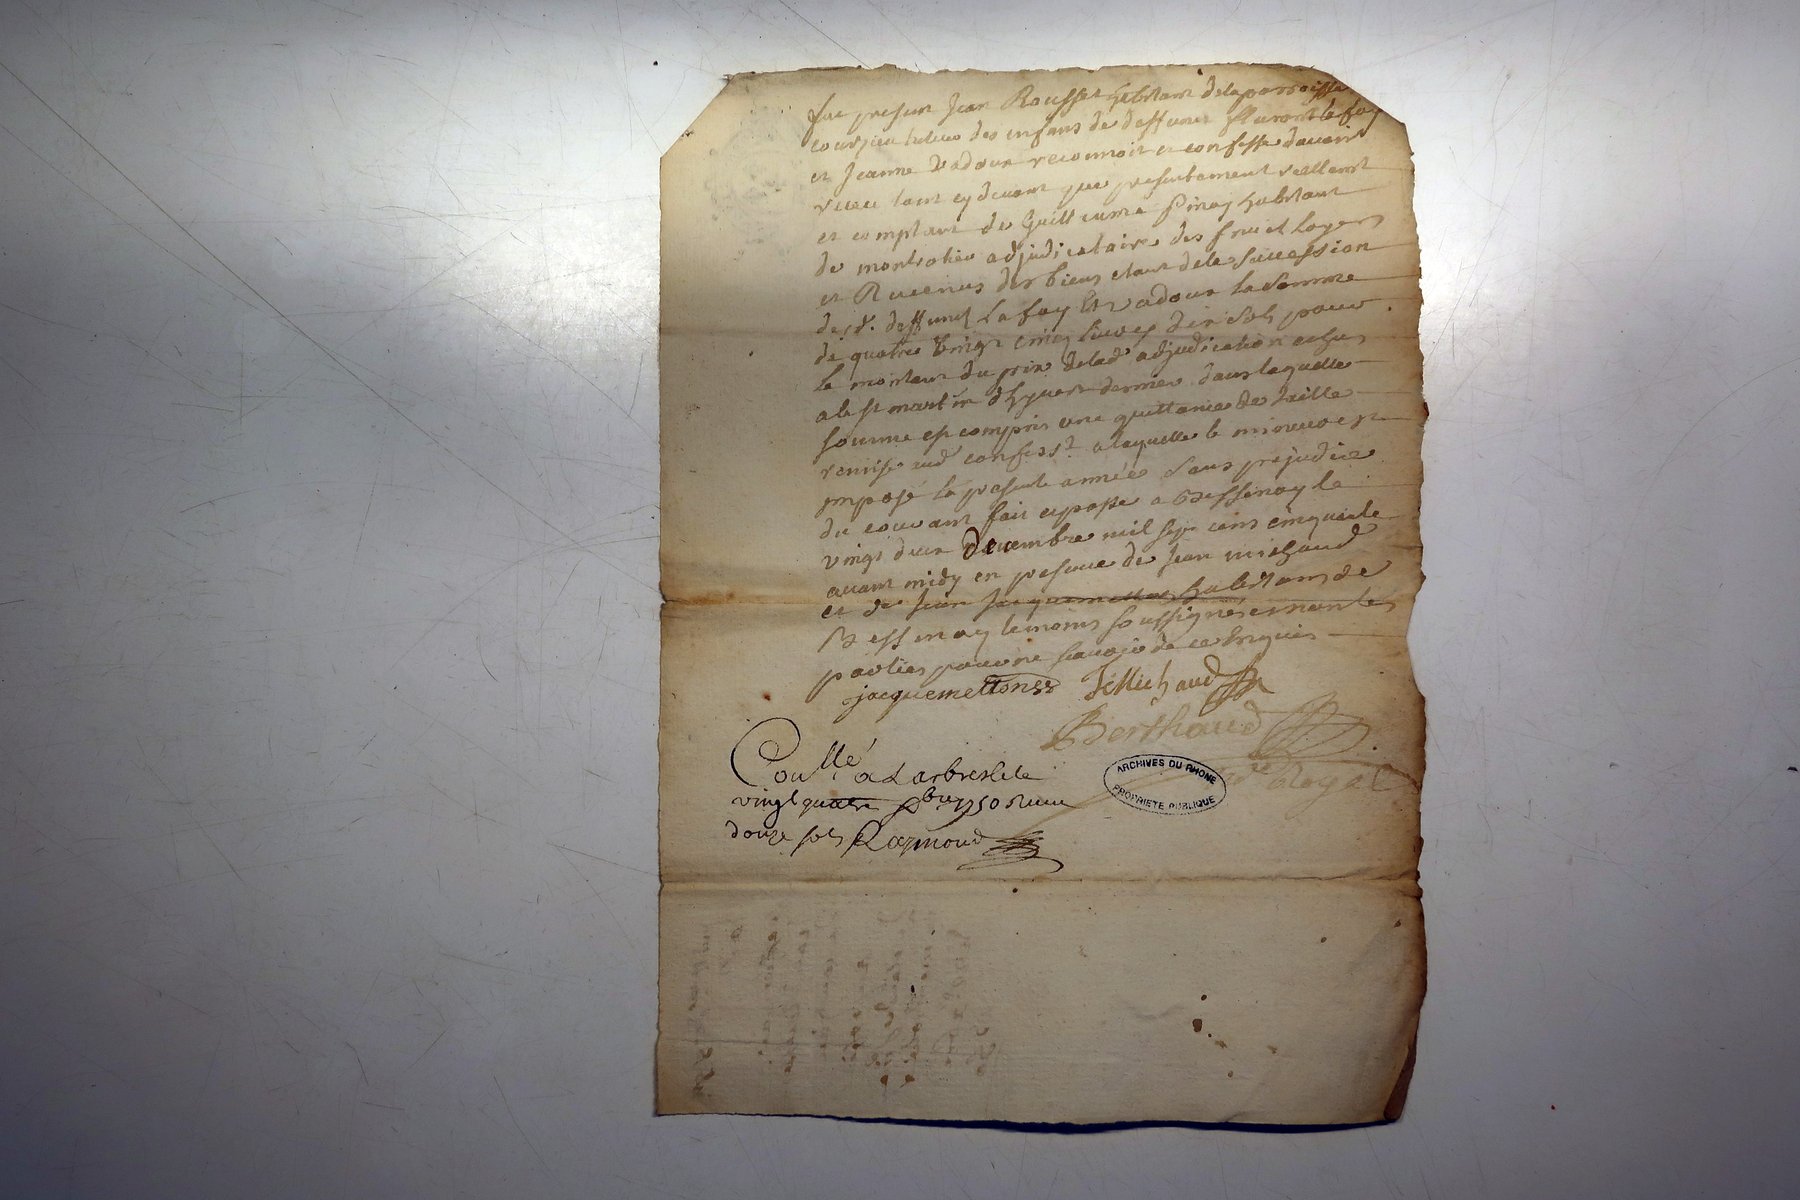 fut present Jean Rousset habitant de la paroisse
courzieu tuteur des enfans de deffunct fleurant lafay
et Jeanne Vadoux reconnoit et confesse davoir
receu tant cy devant que presentement reellement
et comptant de Guillaume Pinay habitant
de montrotier adjudicataire des fruict loyers
et Revenus des biens etant de la succession
desd. deffunct Lafay et vadoux la somme
de quatre vingt cinq livres dix sols pour
le montant du prix de lad adjudication echus
a la st martin dhyvert dernier dans laquelle
somme est compris une quittance de taille
remise aud confess.t a laquelle le mineur est
imposé la presente année sans prejudice
du courant fait et passé a Bessenay le
vingt deux decembre mil sept cens cinquante
avant midy en presence de Jean michaud
et de Jean Jacquemetton habitans de
Bessenay temoins soussignés et non les
parties pour ne scavoir de ce enquis
jacquemetton J Michaud
Berthaud
re Royal
ARCHIVES DU RHONE
PROPRIETE PUBLIQUE
Coullé a Larbresle le
vingt quatre xbre 1750 Receu
douze sols Raymond